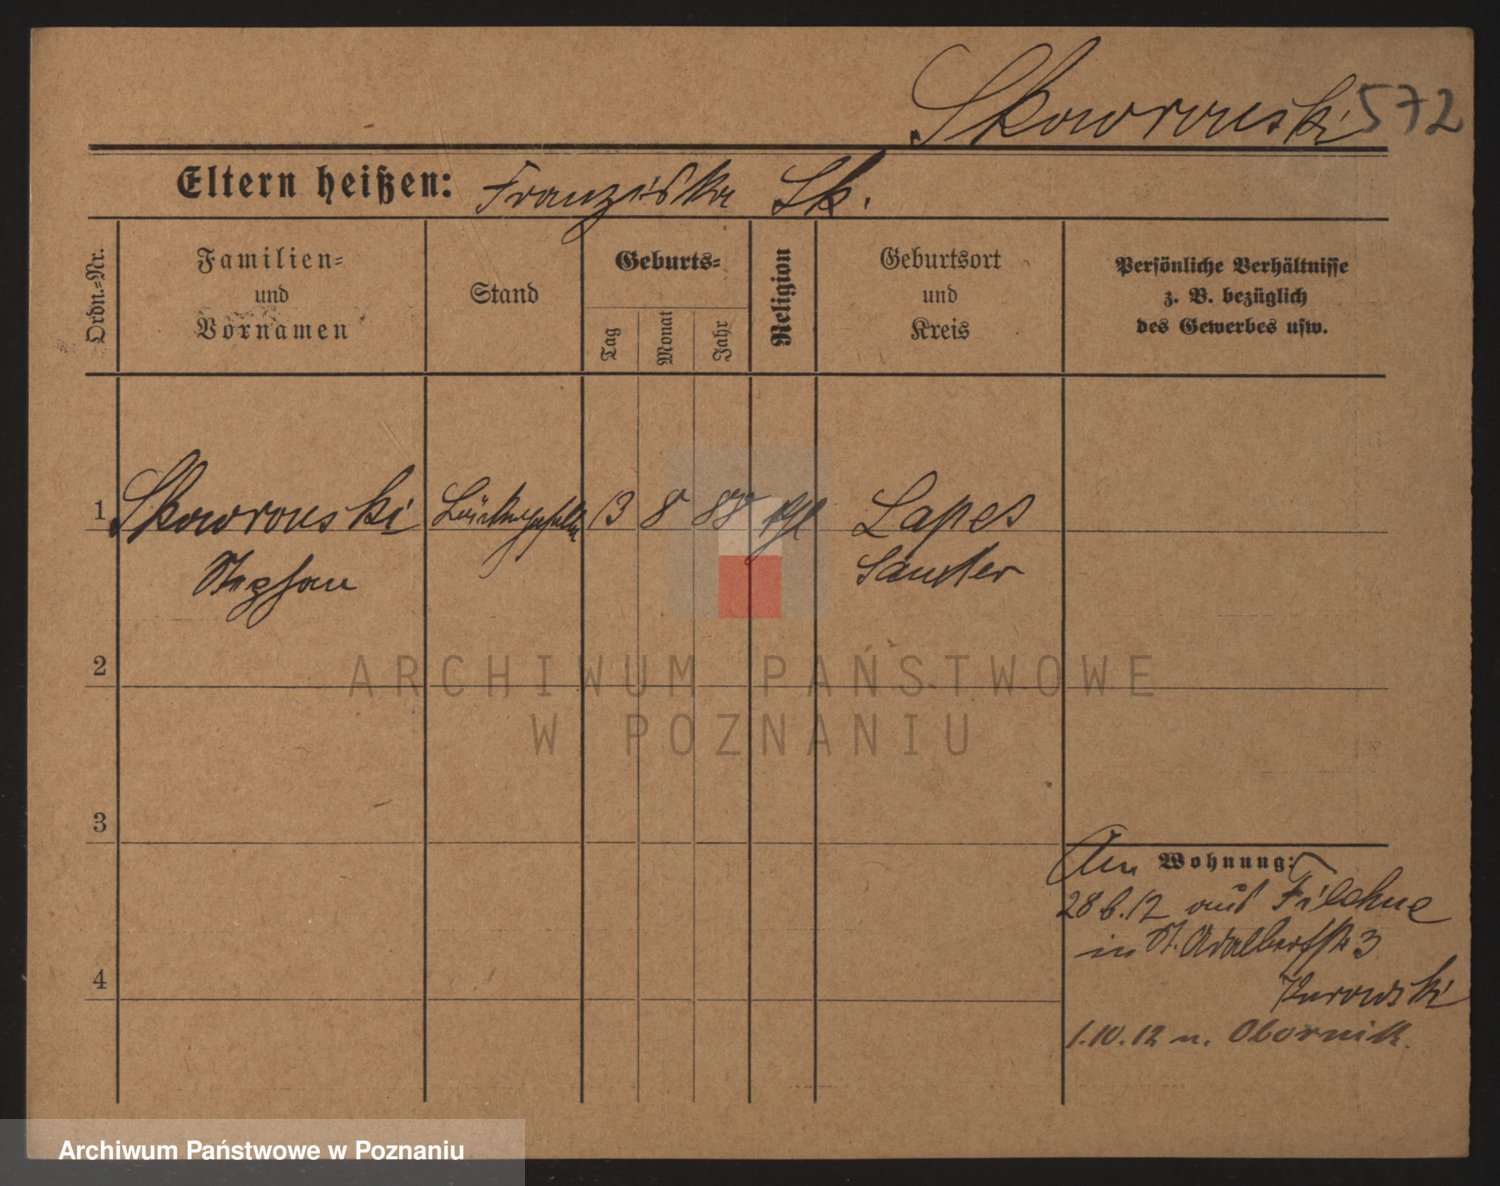 Skowronski 572
Eltern heißen: Franziska Sk.
Ordn.-Nr.
Familien-
und
Vornamen
Stand
Geburts-
Tag
Monat
Jahr
Religion
Geburtsort
und
Kreis
Persönliche Verhältnisse
z. B. bezüglich
des Gewerbes usw.
1 Skowronski 13 8 88 Lapes
Stephan Samter
2
ARCHIWUM PAŃSTWOWE
W POZNANIU
3
An Wohnung:
28 6. 12 aus Filehne
in St. Adalbertstr 3
4
1.10.12 n. Obornik.
Archiwum Państwowe w Poznaniu